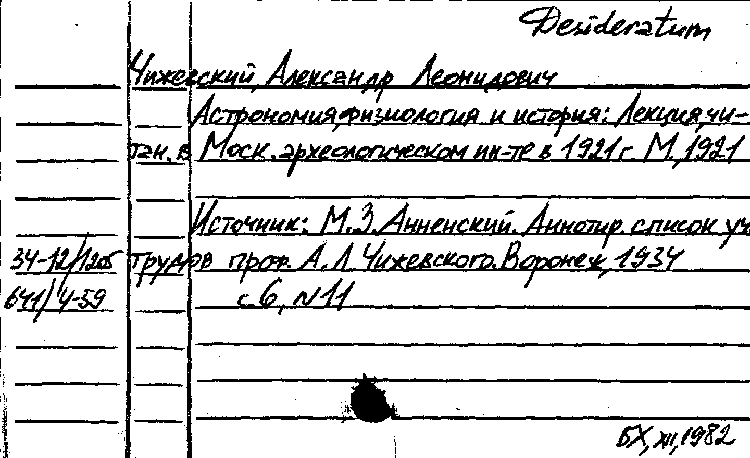 Desideratum
Чижевский, Александр Леонидович
Астрономия, физиология и история: Лекция, чи-
тан. в Моск. археологическом ин-те в 1921 г. М., 1921
Источник: М.З. Анненский. Аннотир. список уч
34-12/1205 трудов проф. А.Л. Чижевского. Воронеж, 1934
641/4-59 с. 6, N 11
БХ, XII, 1982